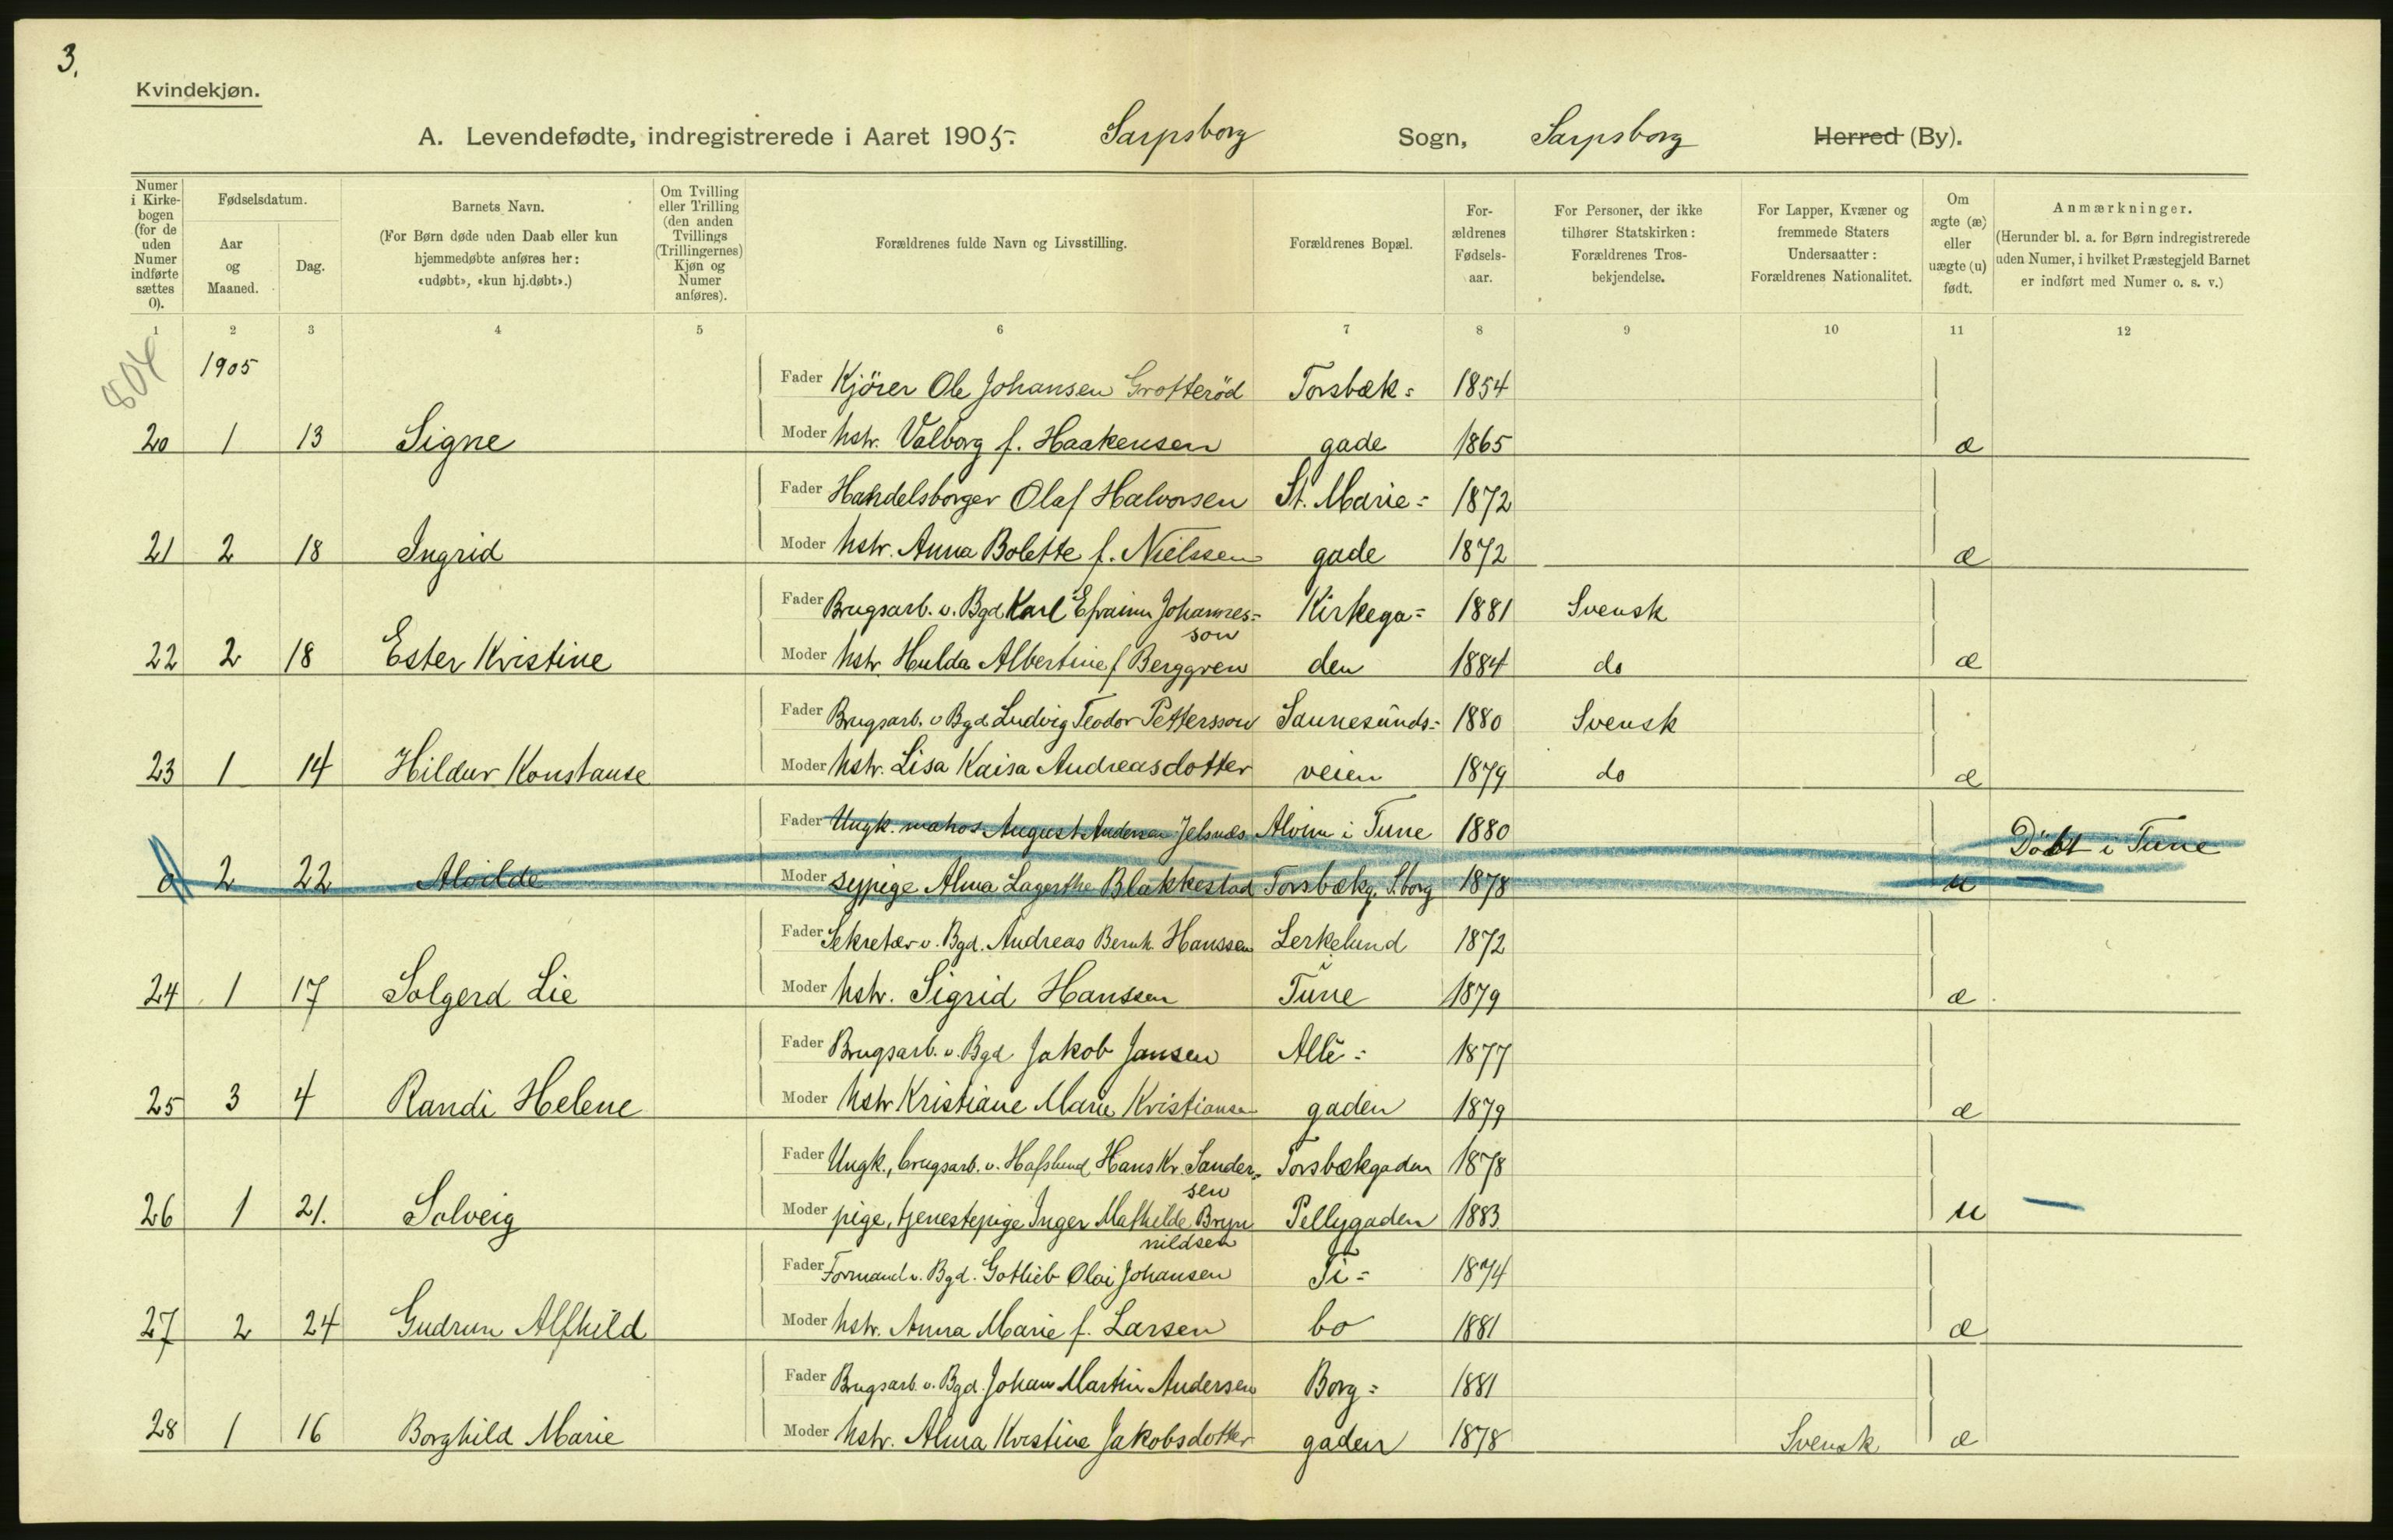 3.
Kvindekjøn.
A. Levendefødte, indregistrerede i Aaret 1905. Sarpsborg Sogn, Sarpsborg Herred (By).
Numer i Kirke-bogen (for de uden Numer indførte sættes 0).
Fødselsdatum.
Aar og Maaned.
Dag.
Barnets Navn.
(For Børn døde uden Daab eller kun hjemmedøbte anføres her: «udøbt», «kun hj.døbt».)
Om Tvilling eller Trilling (den anden Tvillings (Trillingernes) Kjøn og Numer anføres).
Forældrenes fulde Navn og Livsstilling.
Forældrenes Bopæl.
For-ældrenes Fødsels-aar.
For Personer, der ikke tilhører Statskirken: Forældrenes Tros-bekjendelse.
For Lapper, Kvæner og fremmede Staters Undersaatter: Forældrenes Nationalitet.
Om ægte (æ) eller uægte (u) født.
Anmærkninger.
(Herunder bl. a. for Børn indregistrerede uden Numer, i hvilket Præstegjeld Barnet er indført med Numer o. s. v.)
1 2 3 4 5 6 7 8 9 10 11 12
804
1905
Fader Kjörer Ole Johansen Grotteröd Torsbæk= 1854
20 1 13 Signe Moder hstr. Valborg f. Haakensen gade 1865 æ
Fader Handelsborger Olaf Halvorsen St. Marie= 1872
21 2 18 Ingrid Moder hstr. Anna Bolette f. Nielssen gade 1872 æ
Fader Brugsarb. v. Bgd Karl Efraim Johannes= Kirkega= 1881 Svensk
son
22 2 18 Ester Kristine Moder hstr. Hulda Albertine f Berggren den 1884 do æ
Fader Brugsarb. v Bgd Ludvig Teodor Pettersson Sannesunds= 1880 Svensk
23 1 14 Hildur Konstanse Moder hstr. Lisa Kaisa Andreasdotter veien 1879 do æ
Fader Ungk. mathos August Andersen Jelsnæs Alvim i Tune 1880 Döbt i Tune
0 2 22 Alvilde Moder sypige Alma Lagerthe Blakkestad Torsbækg. S.borg 1878 u
Fader Sekretær v. Bgd. Andreas Bernh. Hanssen Lerkelund 1872
24 1 17 Solgerd Lie Moder hstr. Sigrid Hanssen Tune 1879 æ
Fader Brugsarb. v. Bgd Jakob Jansen Allé= 1877
25 3 4 Randi Helene Moder hstr Kristiane Marie Kristiansen gaden 1879 æ
Fader Ungk., brugsarb. v. Hafslund Hans Kr. Sander= Torsbækgaden 1878
sen
26 1 21. Solveig Moder pige, tjenestepige Inger Mathilde Bryn Pellygaden 1883 u —
nildsen
Fader Formand v. Bgd. Gotlieb Olai Johansen Ti= 1874
27 2 24 Gudrun Alfhild Moder hstr. Anna Marie f. Larsen bo 1881 æ
Fader Brugsarb. v. Bgd. Johan Martin Andersen Borg= 1881
28 1 16 Borghild Marie Moder hstr. Alma Kristine Jakobsdotter gaden 1878 Svensk æ